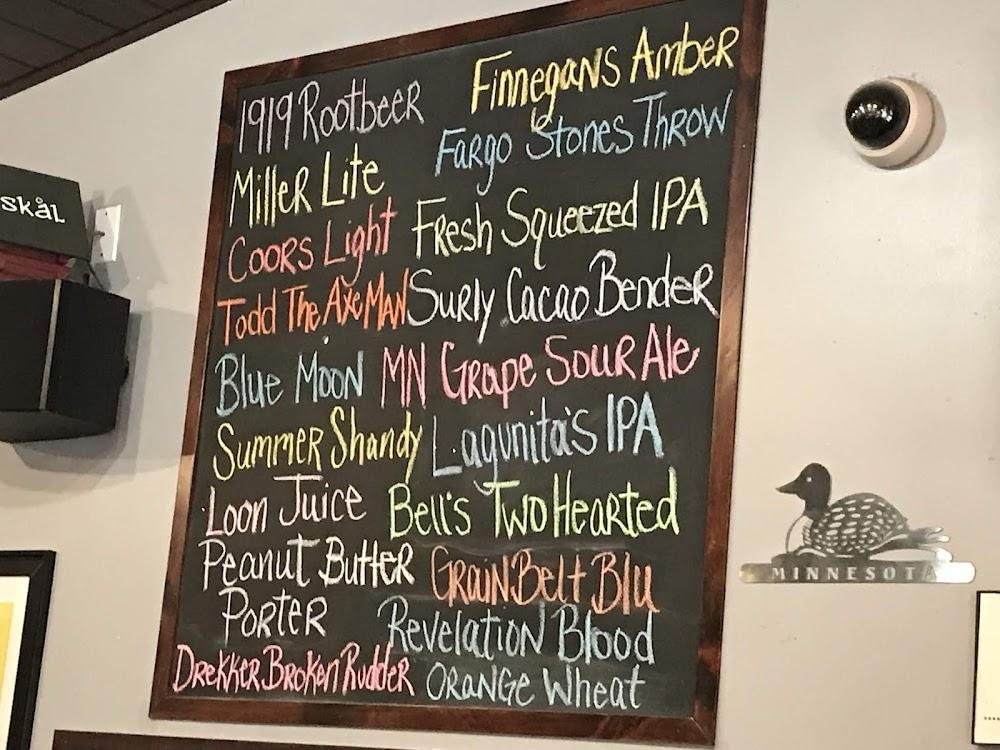 1919 Rootbeer
Miller Lite
Coors Light
Todd The Axe Man
Blue Moon
Summer Shandy
Loon Juice
Peanut Butter
Porter
Drekker Broken Rudder
Finnegans Amber
Fargo Stones Throw
Fresh Squeezed IPA
Surly Cacao Bender
MN Grape Sour Ale
Lagunita's IPA
Bell's Two Hearted
Grain Belt Blu
Revelation Blood
Orange Wheat
SKÅL
MINNESOTA